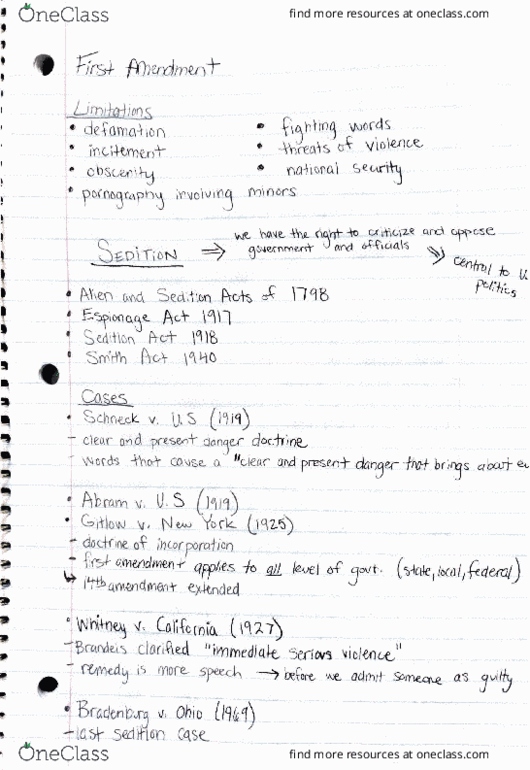 OneClass
find more resources at oneclass.com
First Amendment
Limitations
• defamation
• fighting words
• incitement
• threats of violence
• obscenity
• national security
• pornography involving minors
SEDITION ⇒ we have the right to criticize and oppose
government and officials
central to U
politics
• Alien and Sedition Acts of 1798
• Espionage Act 1917
• Sedition Act 1918
• Smith Act 1940
Cases
• Schneck v. U.S (1919)
- clear and present danger doctrine
- words that cause a "clear and present danger that brings about ev
• Abram v. U.S (1919)
• Gitlow v. New York (1925)
- doctrine of incorporation
- first amendment applies to all level of govt. (state, local, federal)
↳ 14th amendment extended
• Whitney v. California (1927)
- Brandeis clarified "immediate serious violence"
- remedy is more speech → before we admit someone as guilty
• Bradenburg v. Ohio (1969)
- last sedition case
OneClass
find more resources at oneclass.com